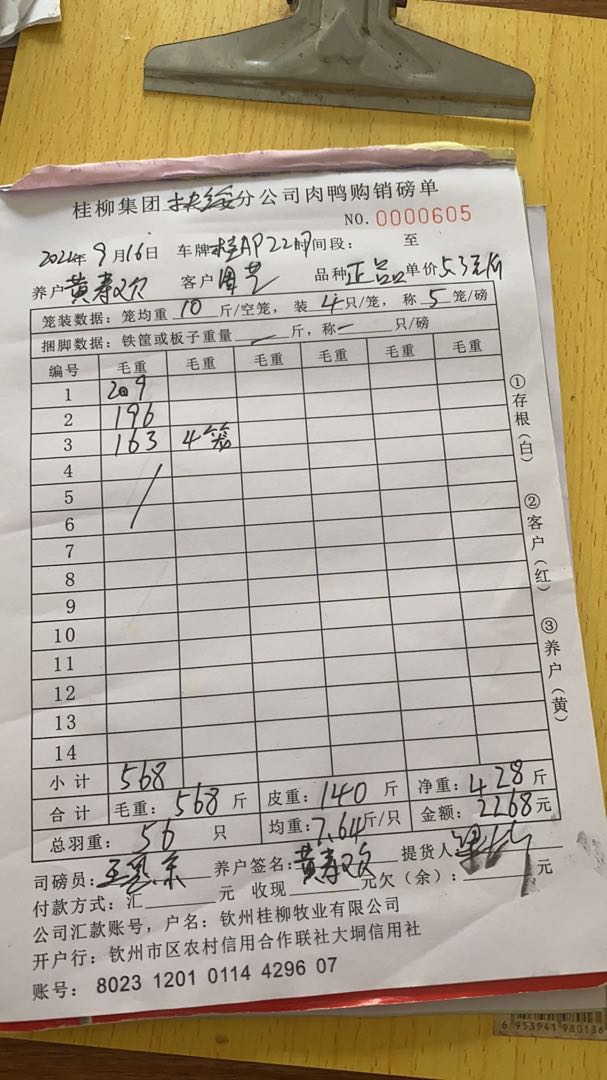 桂柳集团 分公司肉鸭购销磅单
NO. 0000605
2022年 9月16日 车牌桂AP22时间段: 至
养户黄寿欢 客户周艺 品种正品 单价5.3元/斤
笼装数据: 笼均重 10 斤/空笼, 装 4 只/笼, 称 5 笼/磅
捆脚数据: 铁筐或板子重量 — 斤, 称 — 只/磅
编号 毛重 毛重 毛重 毛重 毛重 毛重
1 209
2 196
3 163 4笼
4
5
6
7
8
9
10
11
12
13
14
小计 568
合计 毛重: 568 斤 皮重: 140 斤 净重: 428 斤
总羽重: 56 只 均重: 7.64斤/只 金额: 2268元
司磅员: 王 养户签名: 黄寿欢 提货人
付款方式: 汇 元 收现 元欠(余): 元
公司汇款账号, 户名: 钦州桂柳牧业有限公司
开户行: 钦州市区农村信用合作联社大垌信用社
账号: 8023 1201 0114 4296 07
①存根(白) ②客户(红) ③养户(黄)
6 953941 980136